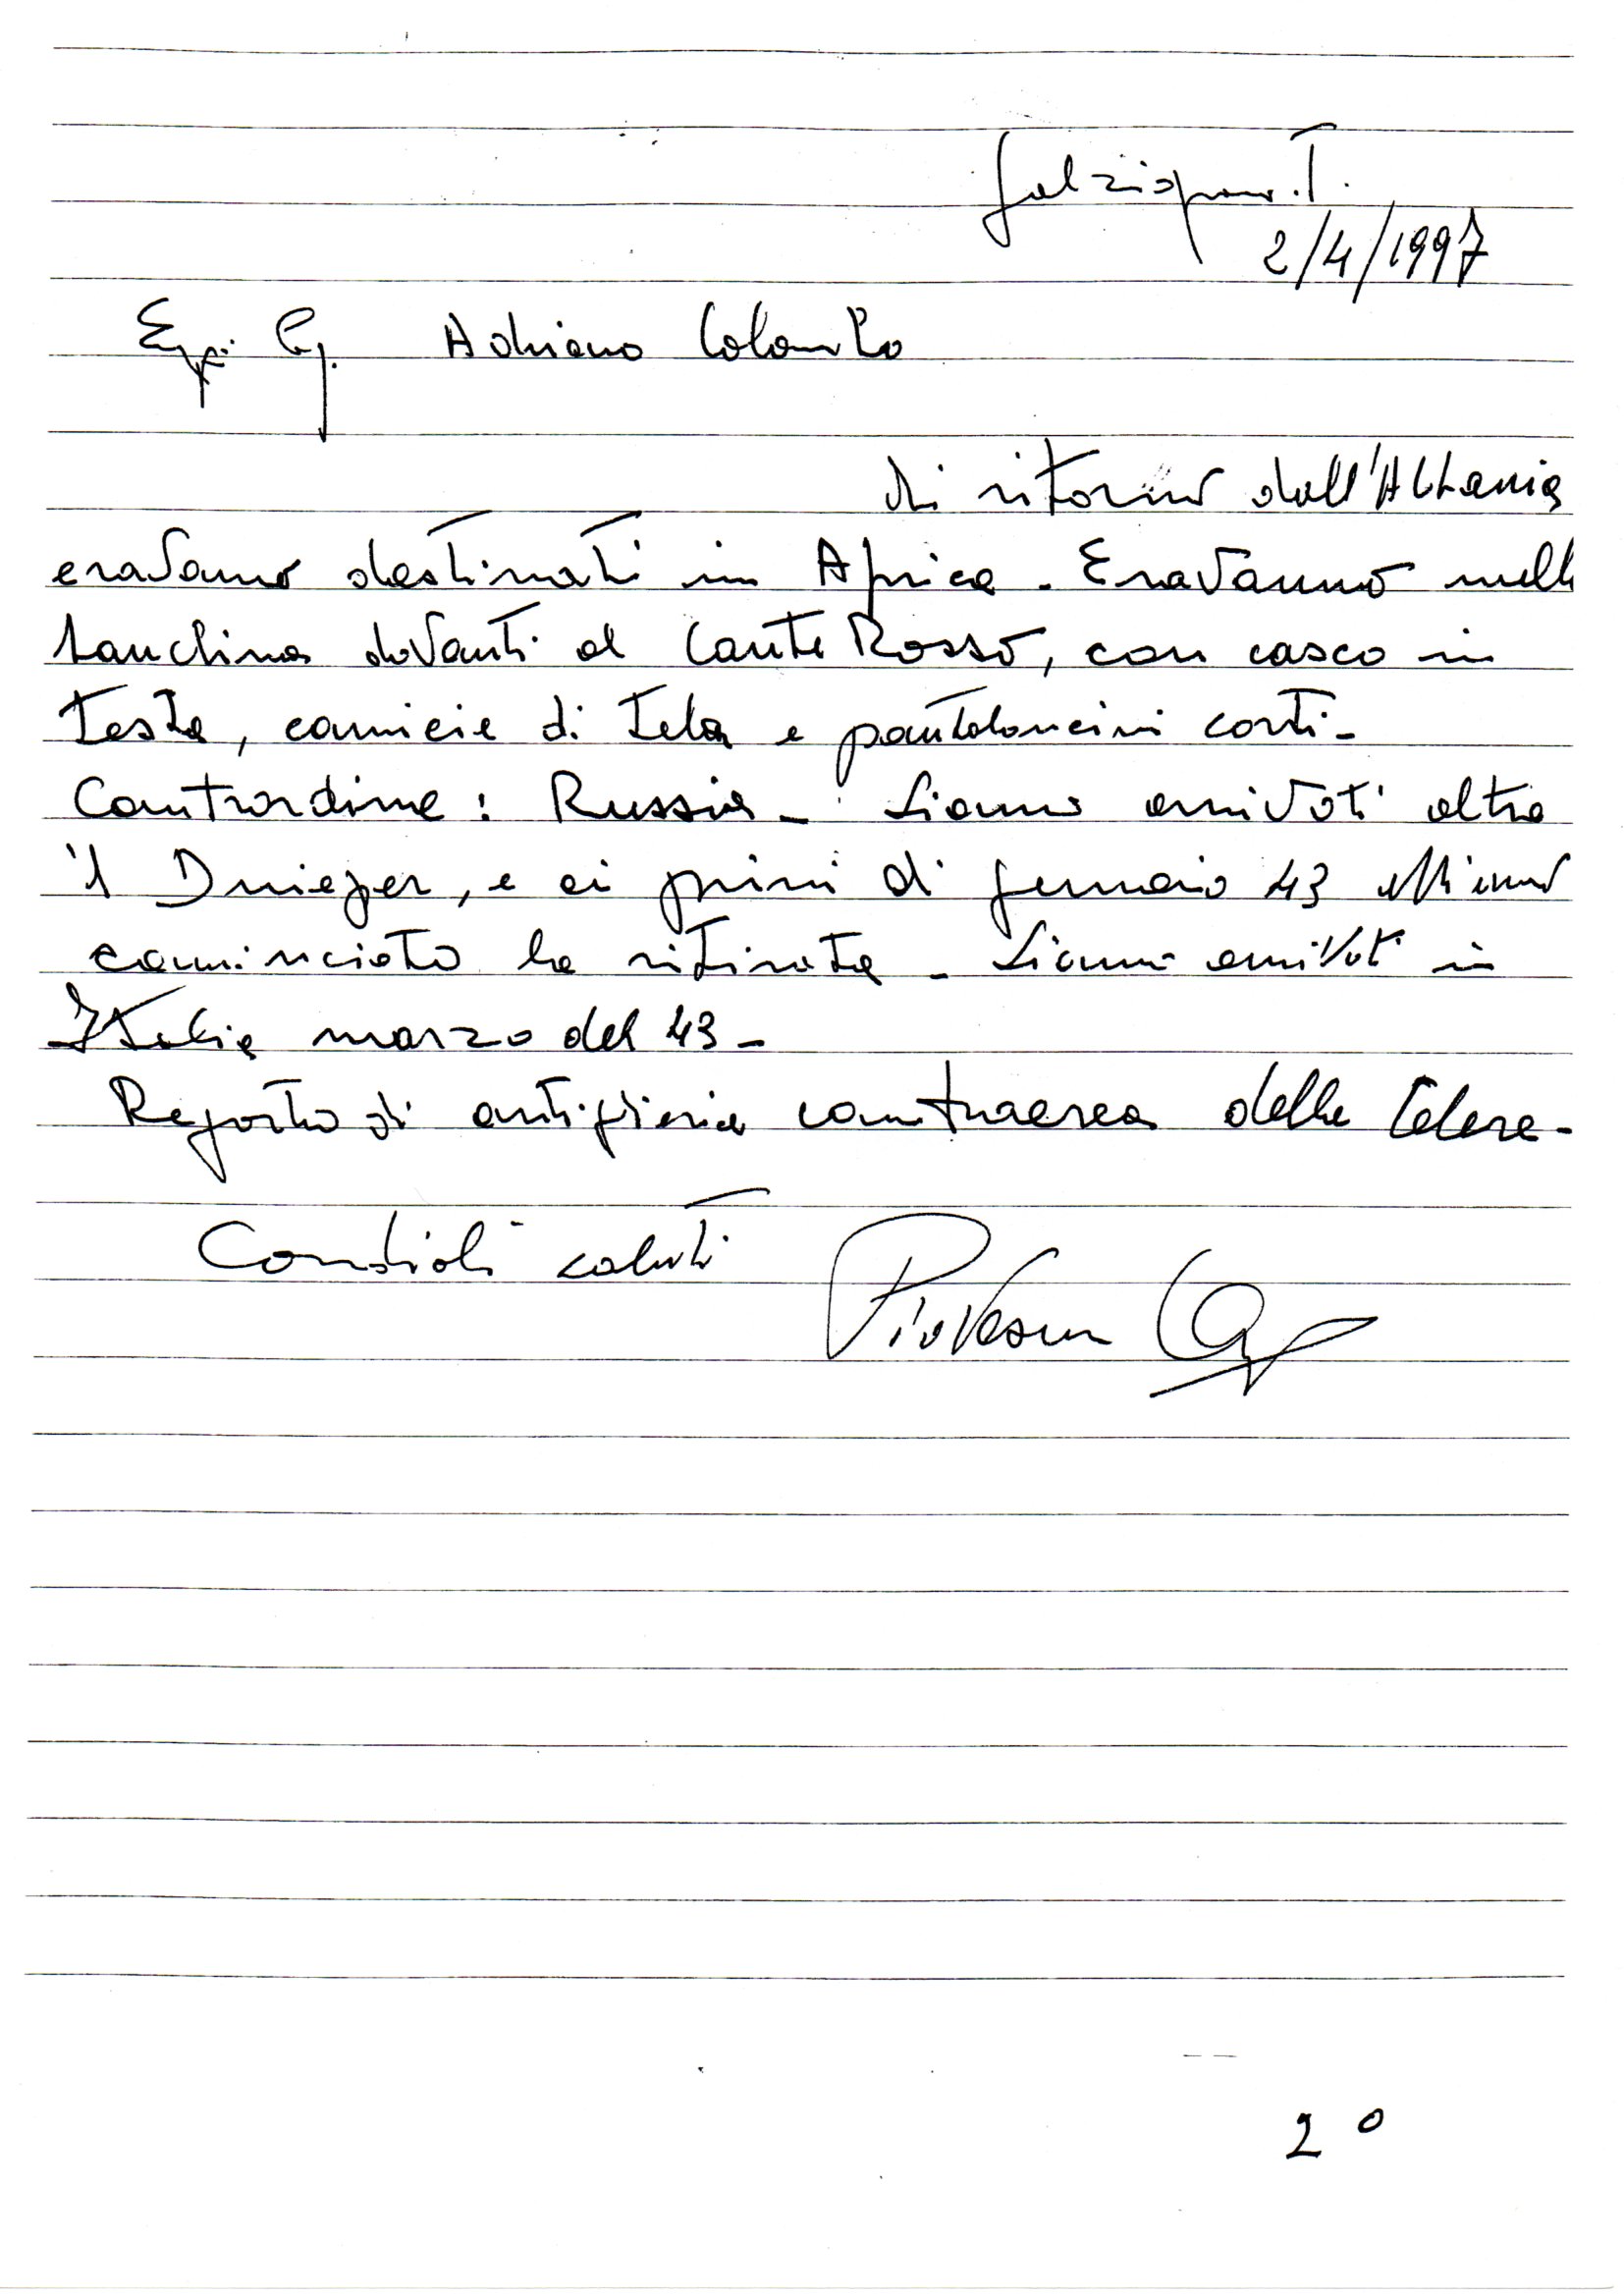 Galzignano. T.
2/4/1997
Egr. Sig. Adriano Colombo
di ritorno dall'Albania
eravamo destinati in Africa - Eravamo nella
banchina davanti al Conte Rosso, con casco in
testa, camicie di tela e pantaloncini corti -
Contrordine : Russia - Siamo arrivati oltre
il Dnieper, e ai primi di gennaio 43 abbiamo
cominciato la ritirata - Siamo arrivati in
Italia marzo del 43 -
Reparto di artiglieria contraerea della Celere -
Cordiali saluti Piovesan
2°